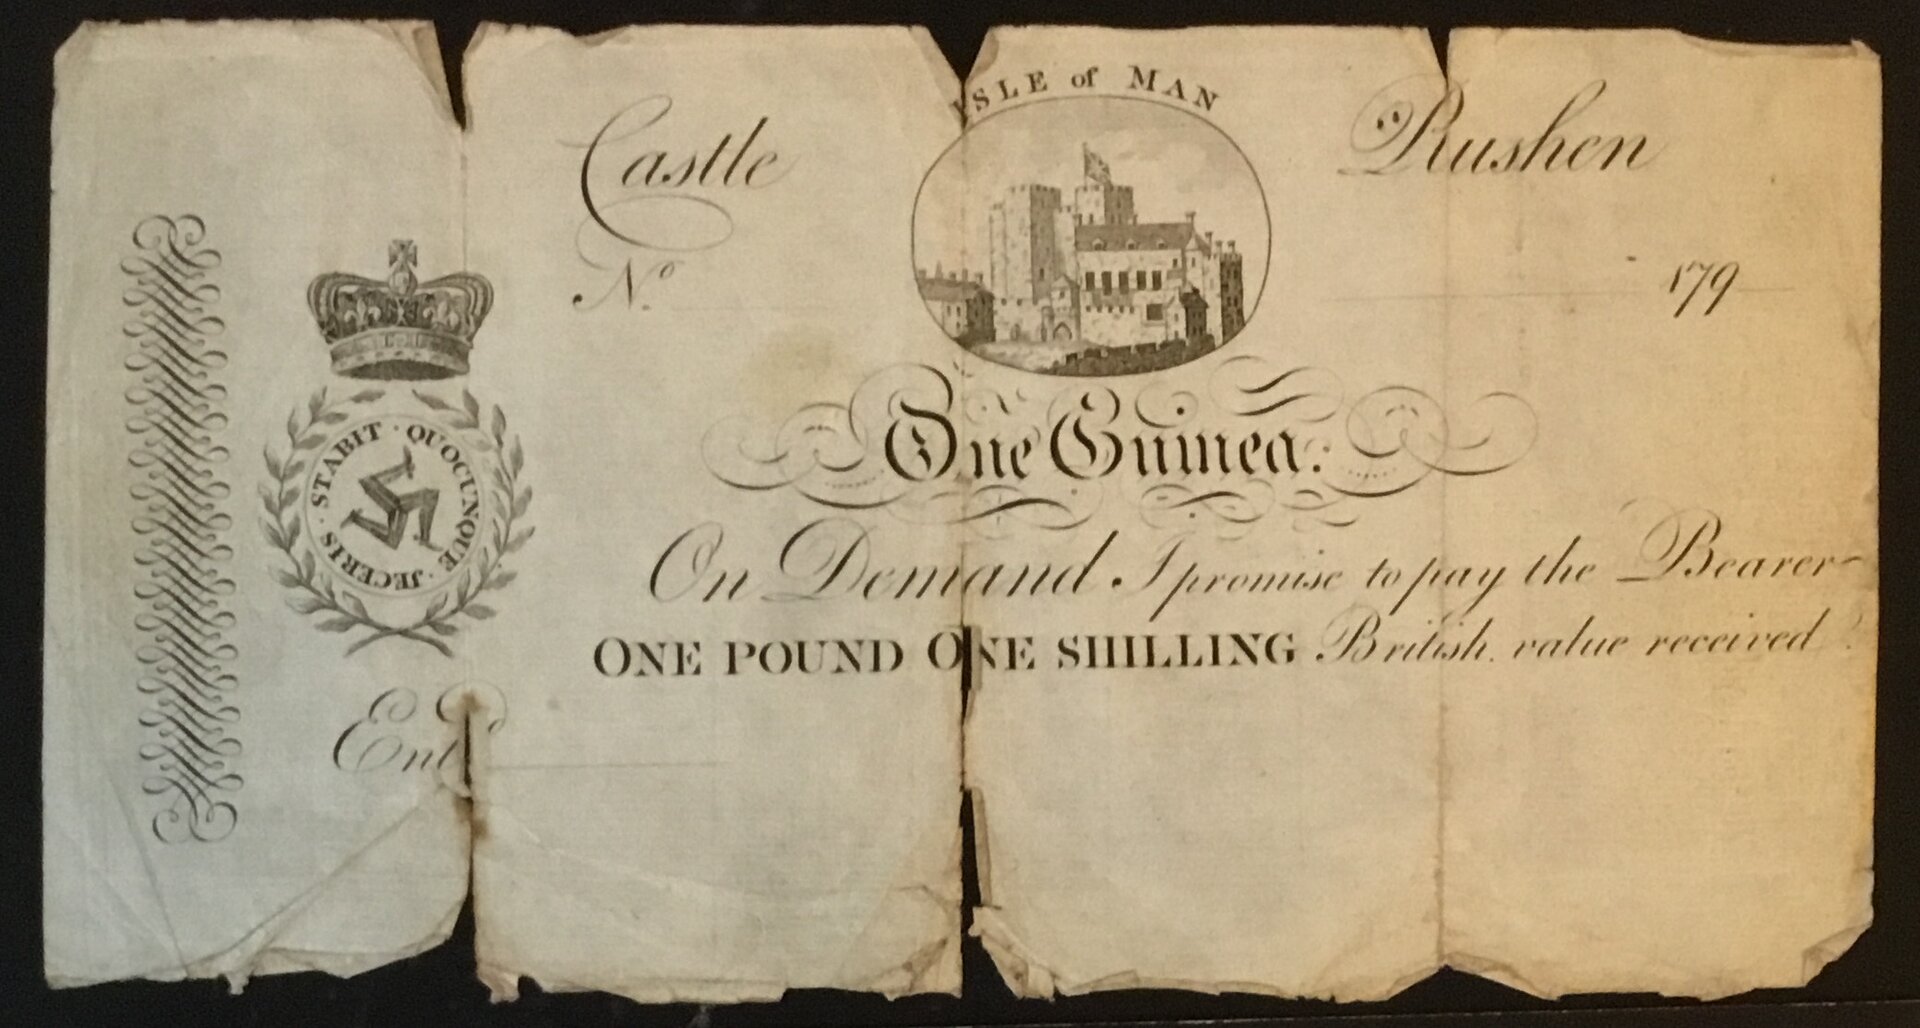 ISLE of MAN
Castle Rushen
No. 179
STABIT · QUOCUNQUE · JECERIS ·
One Guinea.
On Demand I promise to pay the Bearer
ONE POUND ONE SHILLING British, value received.
Entd.